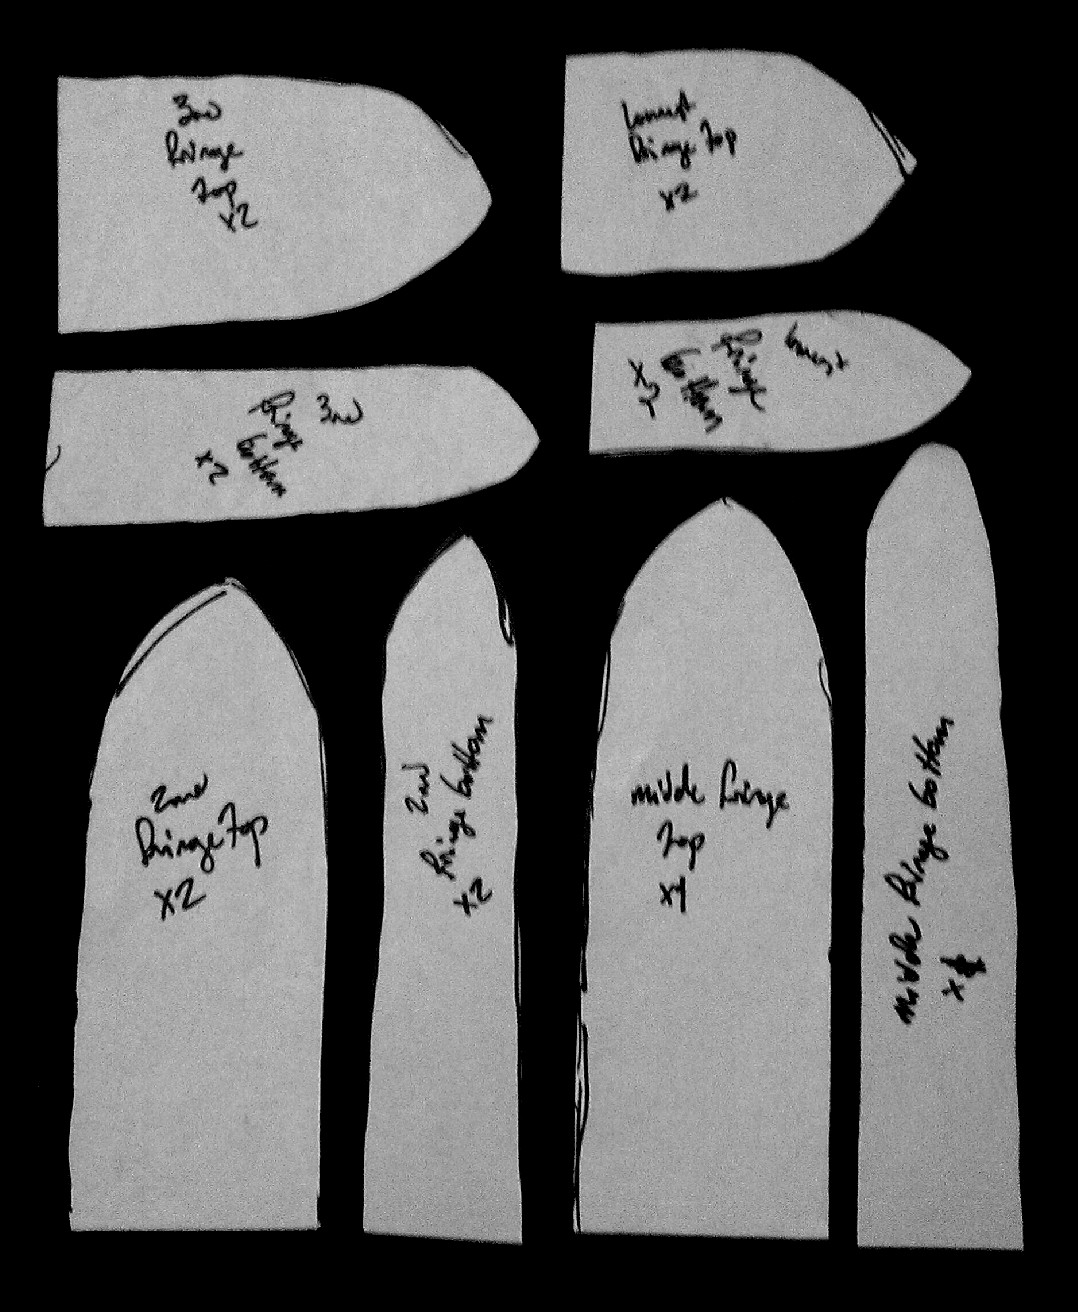 3rd
fringe
top
x2
lowest
fringe top
x2
3rd
fringe
bottom
x2
lowest
fringe
bottom
x2
2nd
fringe top
x2
2nd
fringe bottom
x2
middle fringe
top
x1
middle fringe bottom
x1